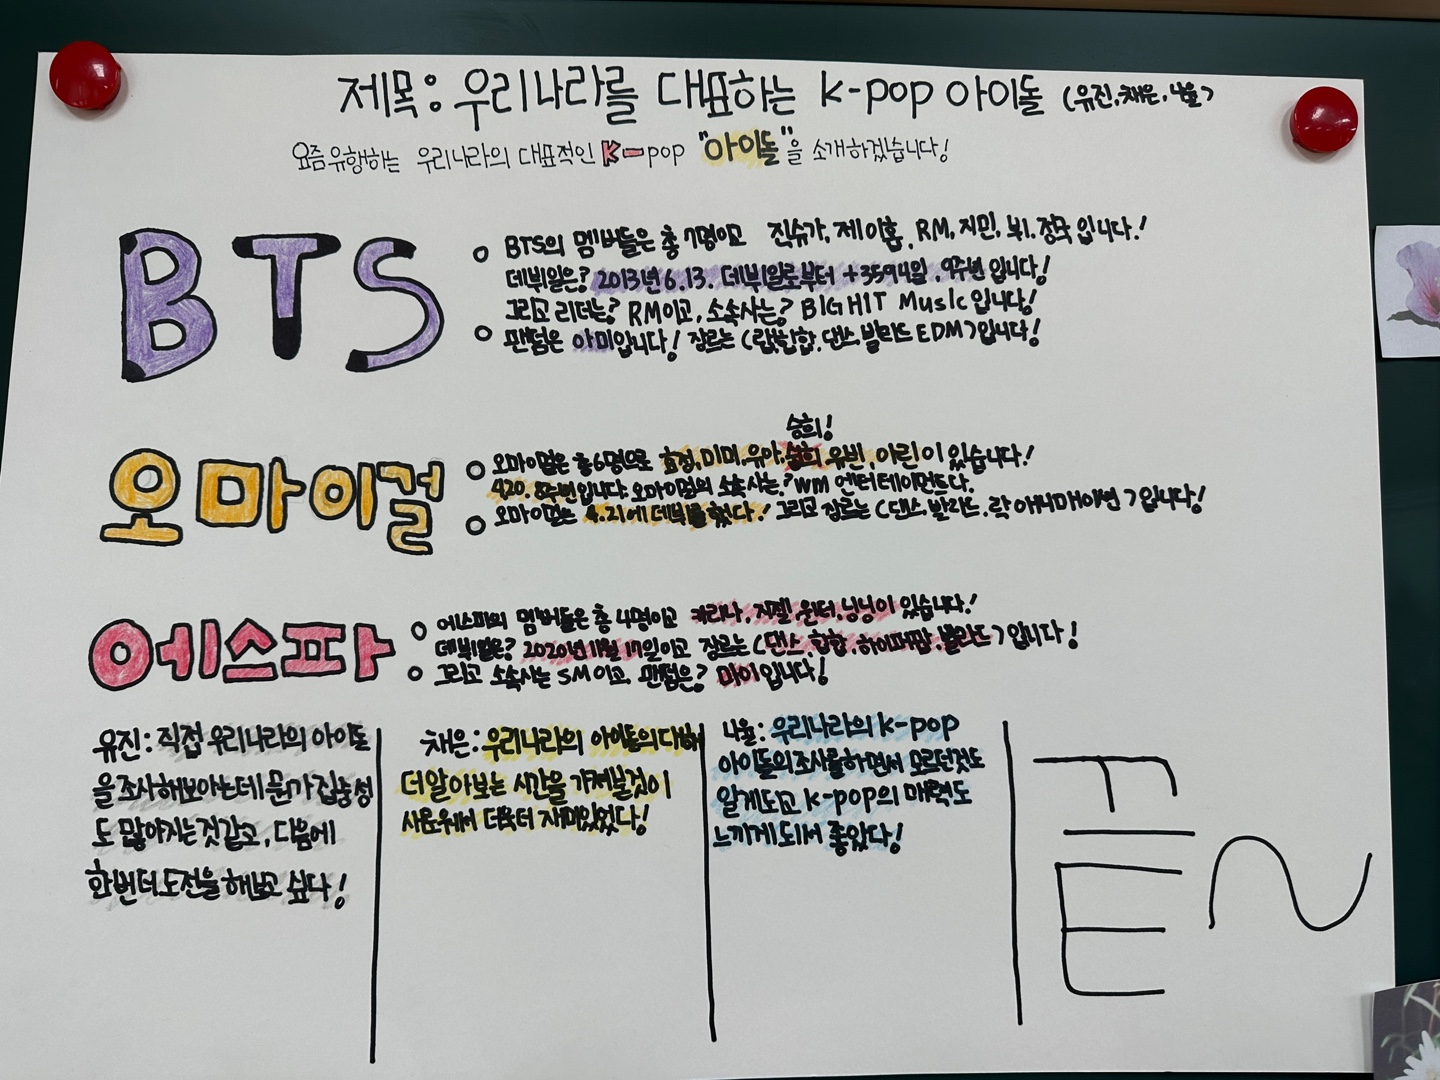 제목: 우리나라를 대표하는 k-pop 아이돌 (유진, 채은, 나율)
요즘 유행하는 우리나라의 대표적인 K-pop "아이돌"을 소개하겠습니다!
BTS
BTS의 멤버들은 총 7명이고 진슈가, 제이홉, RM, 지민, 뷔, 정국 입니다!
데뷔일은? 2013년 6.13. 데뷔일로부터 +3594일. 9주년 입니다!
그리고 리더는? RM이고, 소속사는? BIGHIT Music입니다!
팬텀은 아미입니다! 장르는 (랩,힙합, 댄스, 발라드 EDM)입니다!
오마이걸
승희!
오마이걸은 총6명으로 효정, 미미, 유아, 승희, 유빈, 아린이 있습니다!
420. 8주년입니다. 오마이걸의 소속사는? WM 엔터테이먼트다.
오마이걸은 4.21에 데뷔를 했다! 그리고 장르는 (댄스, 발라드, 락 애니매이션)입니다!
에스파
에스파의 멤버들은 총 4명이고 카리나, 지젤! 윈터, 닝닝이 있습니다!
데뷔일은? 2020년 11월 17일이고 장르는 (댄스, 힙합, 하이퍼팝, 발라드)입니다!
그리고 소속사는 SM이고, 팬텀은? 마이입니다!
유진: 직접 우리나라의 아이돌
을 조사해보았는데 뭔가 집중성
도 많아지는것같고, 다음에
한번더 도전을 해보고 싶다!
채은: 우리나라의 아이돌의 대해
더 알아보는 시간을 가져본것이
새로워서 더욱더 재미있었다!
나율: 우리나라의 k-pop
아이돌의조사를하면서 모르던것도
알게되고 k-pop의 매력도
느끼게되서 좋았다!
끝~